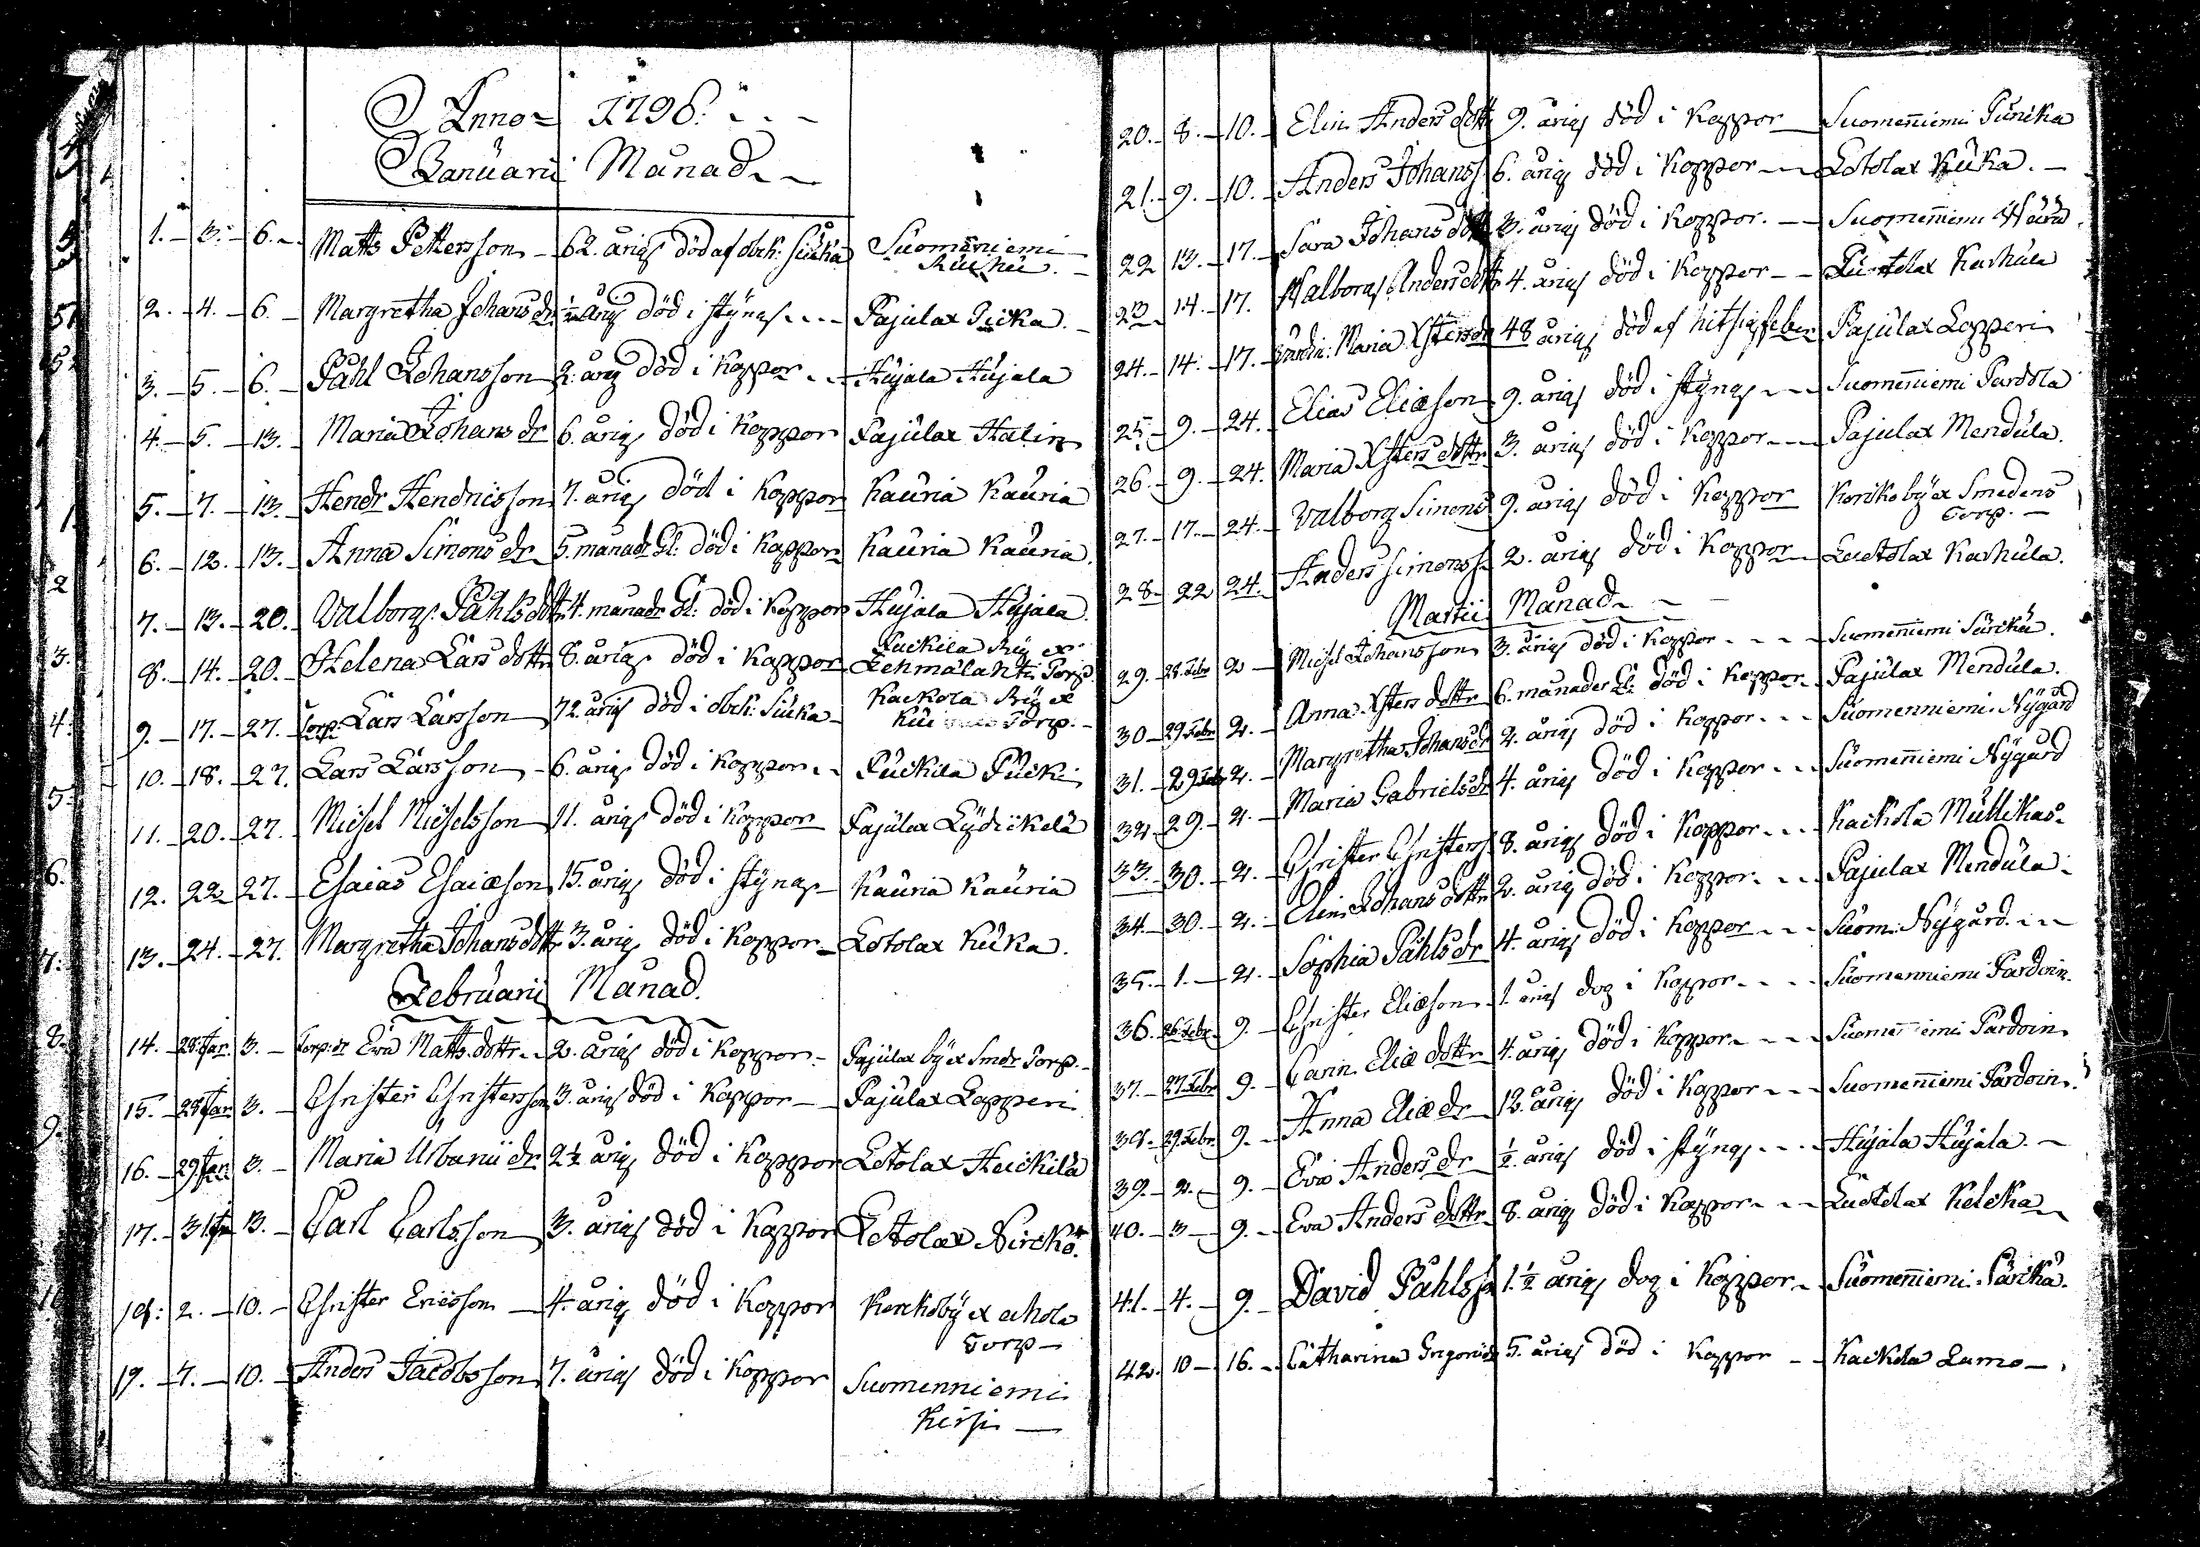 Anno 1796.
Januarii Månad
1. 3. 6. Matts Pettersson 62. årig död af obek: siuka Suomenniemi
2. 4. 6. Margretha Johans dr ½ årig död i styng Pajulax
3. 5. 6. Påhl Johansson 2. årig död i Koppor Hujala Hujala
4. 5. 13. Maria Johans dr 6. årig död i Koppor Pajulax Halin
5. 7. 13. Hendr Hendricsson 7. årig död i Koppor Kauria Kauria
6. 12. 13. Anna Simons dr 5. månad. Gl: död i Koppor Kauria Kauria
7. 13. 20. Valborg Påhls dottr 4. månadr Gl: död i Koppor Hujala Hujala
8. 14. 20. Helena Lars dottr 8. årig död i Koppor
Lehmälahti Torp
9. 17. 27. Torp: Lars Larsson 72. årig död i obek: Siuka Kackola
Torp.
10. 18. 27. Lars Larsson 6. årig död i Koppor
11. 20. 27. Michel Michelsson 11. årig död i Koppor Pajulax
12. 22 27. Esaias Esaiæson 15. årig död i styng Kauria Kauria
13. 24. 27. Margretha Johans dottr 3. årig död i Koppor Lotolax Kuka.
Februarii Månad.
14. 28. Jan. 3. Torp. dr Eva Matts dottr 2. årig död i Koppor Pajulax by ex Smdr Torp.
15. 28 Jan 3. Christer Christersson 3. årig död i Koppor Pajulax Lopperi
16. 29 Jan 3. Maria Urbani dr 2½ årig död i Koppor Lotolax Heickilä
17. 31 Jan 3. Carl Carlsson 3. årig död i Koppor Lotolax
18. 2. 10. Christer Ericsson 4. årig död i Koppor
Torp
19. 7. 10. Anders Jacobsson 7. årig död i Koppor Suomenniemi
Kirsi
20. 8. 10. Elin Anders dottr 9. årig död i Koppor Suomenniemi
21. 9. 10. Anders Johanss 6. årig död i Koppor Lotolax Kuka.
22 13. 17. Sara Johans dottr 3. årig död i Koppor. Suomenniemi
23 14 17. Walborg Anders dottr 4. årig död i Koppor Karhula
24. 14. 17. Maria Xsters dr 48 årig död af hitsig feber Pajulax Lopperi
25. 9. 24. Elias Eliæson 9. årig död i styng Suomenniemi
26. 9. 24. Maria Xsters dottr 3. årig död i Koppor Pajulax Mendula.
27. 17. 24. Valborg Simons 9. årig död i Koppor by ex Smedens
Torp.
28. 22 24. Anders Simonss 2. årig död i Koppor Luotolax Karhula.
Martii Månad
29. 28. Febr 2 Michel Johansson 3. årig död i Koppor Suomenniemi
30 29 Febr 2. Anna Xsters dottr 6. månader Gl: död i Koppor Pajulax Mendula.
31. 29 Febr 2. Margretha Johans dr 2. årig död i Koppor Suomenniemi Nygård
32 29. 2. Maria Gabriels dr 4. årig död i Koppor Suomenniemi Nygård
33. 30. 2. Christer Christerss 8. årig död i Koppor Kackola
34. 30. 2. Elin Johans dottr 2. årig död i Koppor Pajulax Mendula.
35. 1. 2. Sophia Påhls dr 4. årig död i Koppor Suom: Nygård.
36. 26. Febr. 9. Christer Eliæson 1. årig dog i Koppor Suomenniemi Pardoin
37. 27. Febr 9. Carin Eliæ dottr 4. årig död i Koppor Suomenniemi Pardoin
38. 29. Febr. 9. Anna Eliæ dr 12. årig död i Koppor Suomenniemi Pardoin.
39. 2. 9. Eva Anders dr ½ årig död i styng Hujala Hujala.
40. 3 9. Eva Anders dottr 8. årig död i Koppor Luotolax
41. 4. 9. David Påhlss 1.½ årig dog i Koppor Suomenniemi
42. 10 16. Catharina 5. årig död i Koppor Kackola